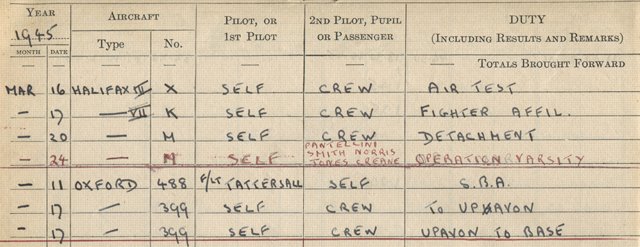 YEAR AIRCRAFT PILOT, OR 2ND PILOT, PUPIL DUTY
1945 1ST PILOT OR PASSENGER (INCLUDING RESULTS AND REMARKS)
MONTH DATE Type No.
— — — — — — TOTALS BROUGHT FORWARD
MAR 16 HALIFAX III X SELF CREW AIR TEST
— 17 — VII K SELF CREW FIGHTER AFFIL.
— 20 — M SELF CREW DETACHMENT
PANTELLINI
SMITH NORRIS
— 24 — M SELF JONES CREANE OPERATION VARSITY
— 11 OXFORD 488 F/LT TATTERSALL SELF S.B.A.
— 17 — 399 SELF CREW TO UPAVON
— 17 — 399 SELF CREW UPAVON TO BASE